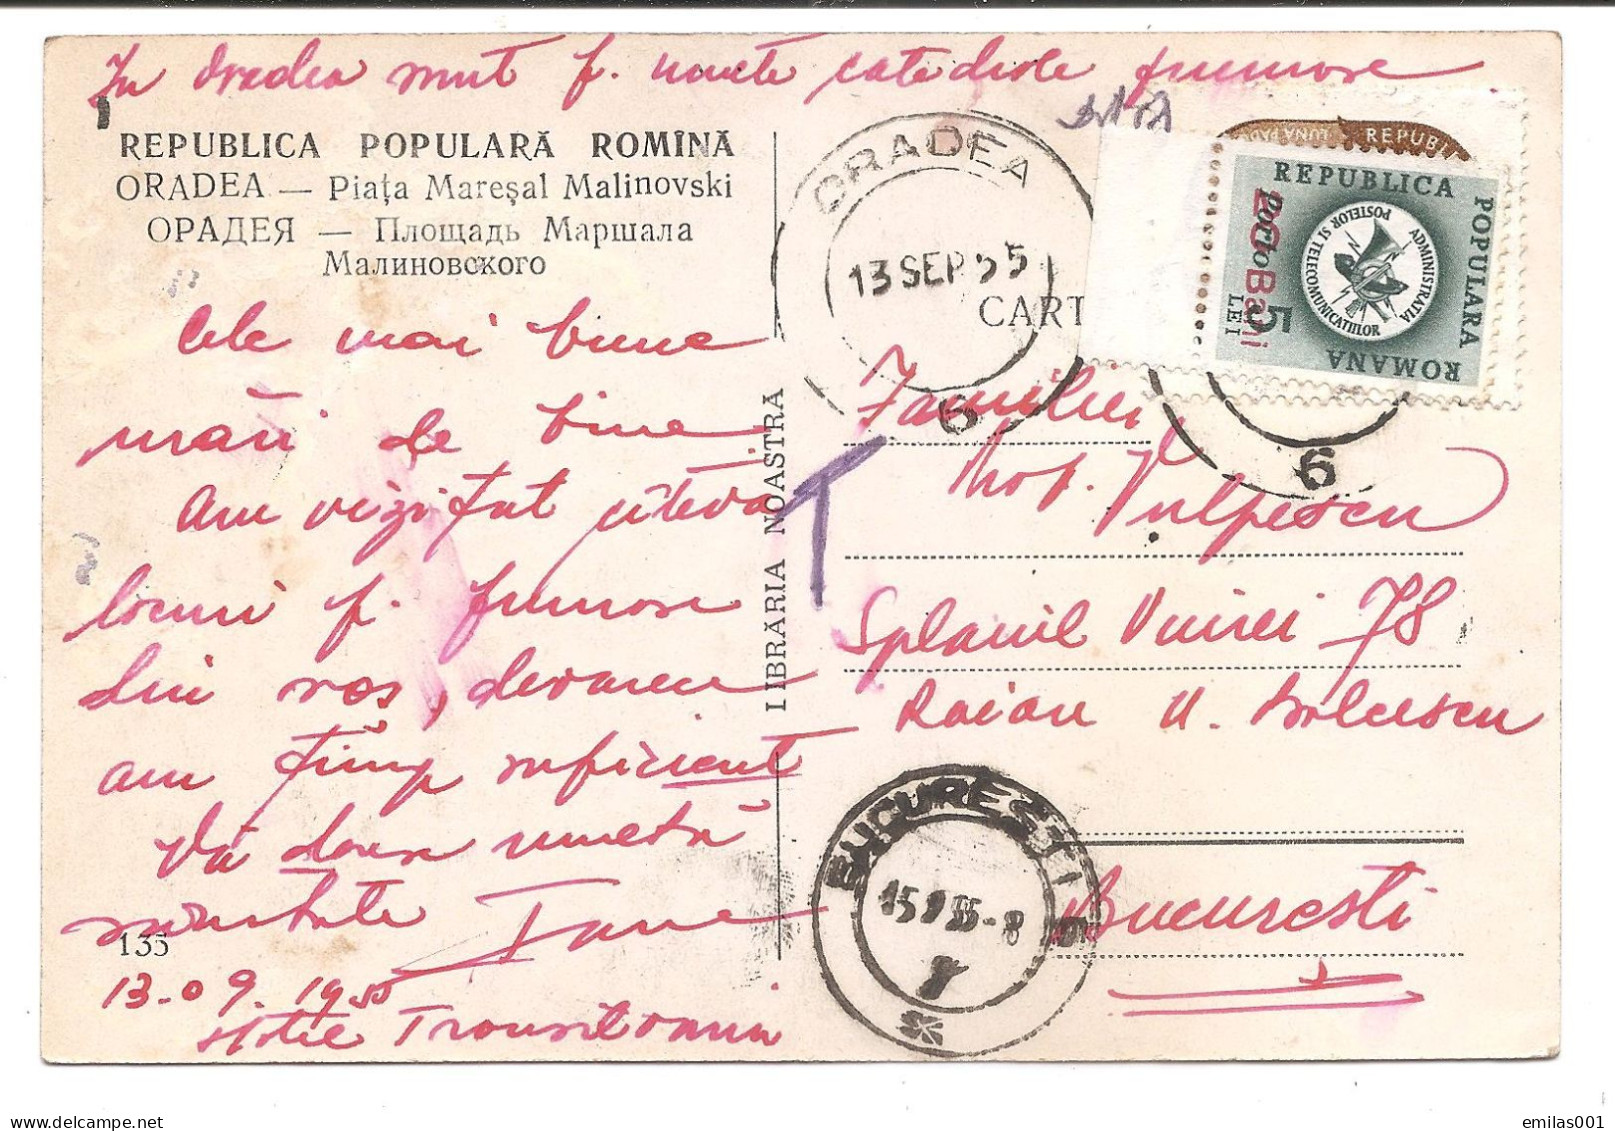 In Oradea sunt f. multe catedrale frumoase
REPUBLICA POPULARĂ ROMÎNĂ
ORADEA — Piaţa Mareşal Malinovski
ОРАДЕЯ — Площадь Маршала
Малиновского
Cele mai bune
urări de bine
Am vizitat câteva
locuri f. frumoase
din , deoarece
am timp suficient
Vă doresc multă
sănătate
135
13.09.1955
Transilvania
LIBRĂRIA NOASTRĂ
ORADEA
13 SEP 55
6
CART
T
REPUBLICA
POPULARA
ROMANA
ADMINISTRATIA
POSTELOR SI TELECOMUNICATIILOR
Porto
20 Bani
5
LEI
LUNA PADU
REPUBLI
6
Familiei
Prof. Vulpescu
Splaiul Unirei 78
Raion N. Bălcescu
Bucuresti
BUCUREŞTI
emilas001
delcampe.net